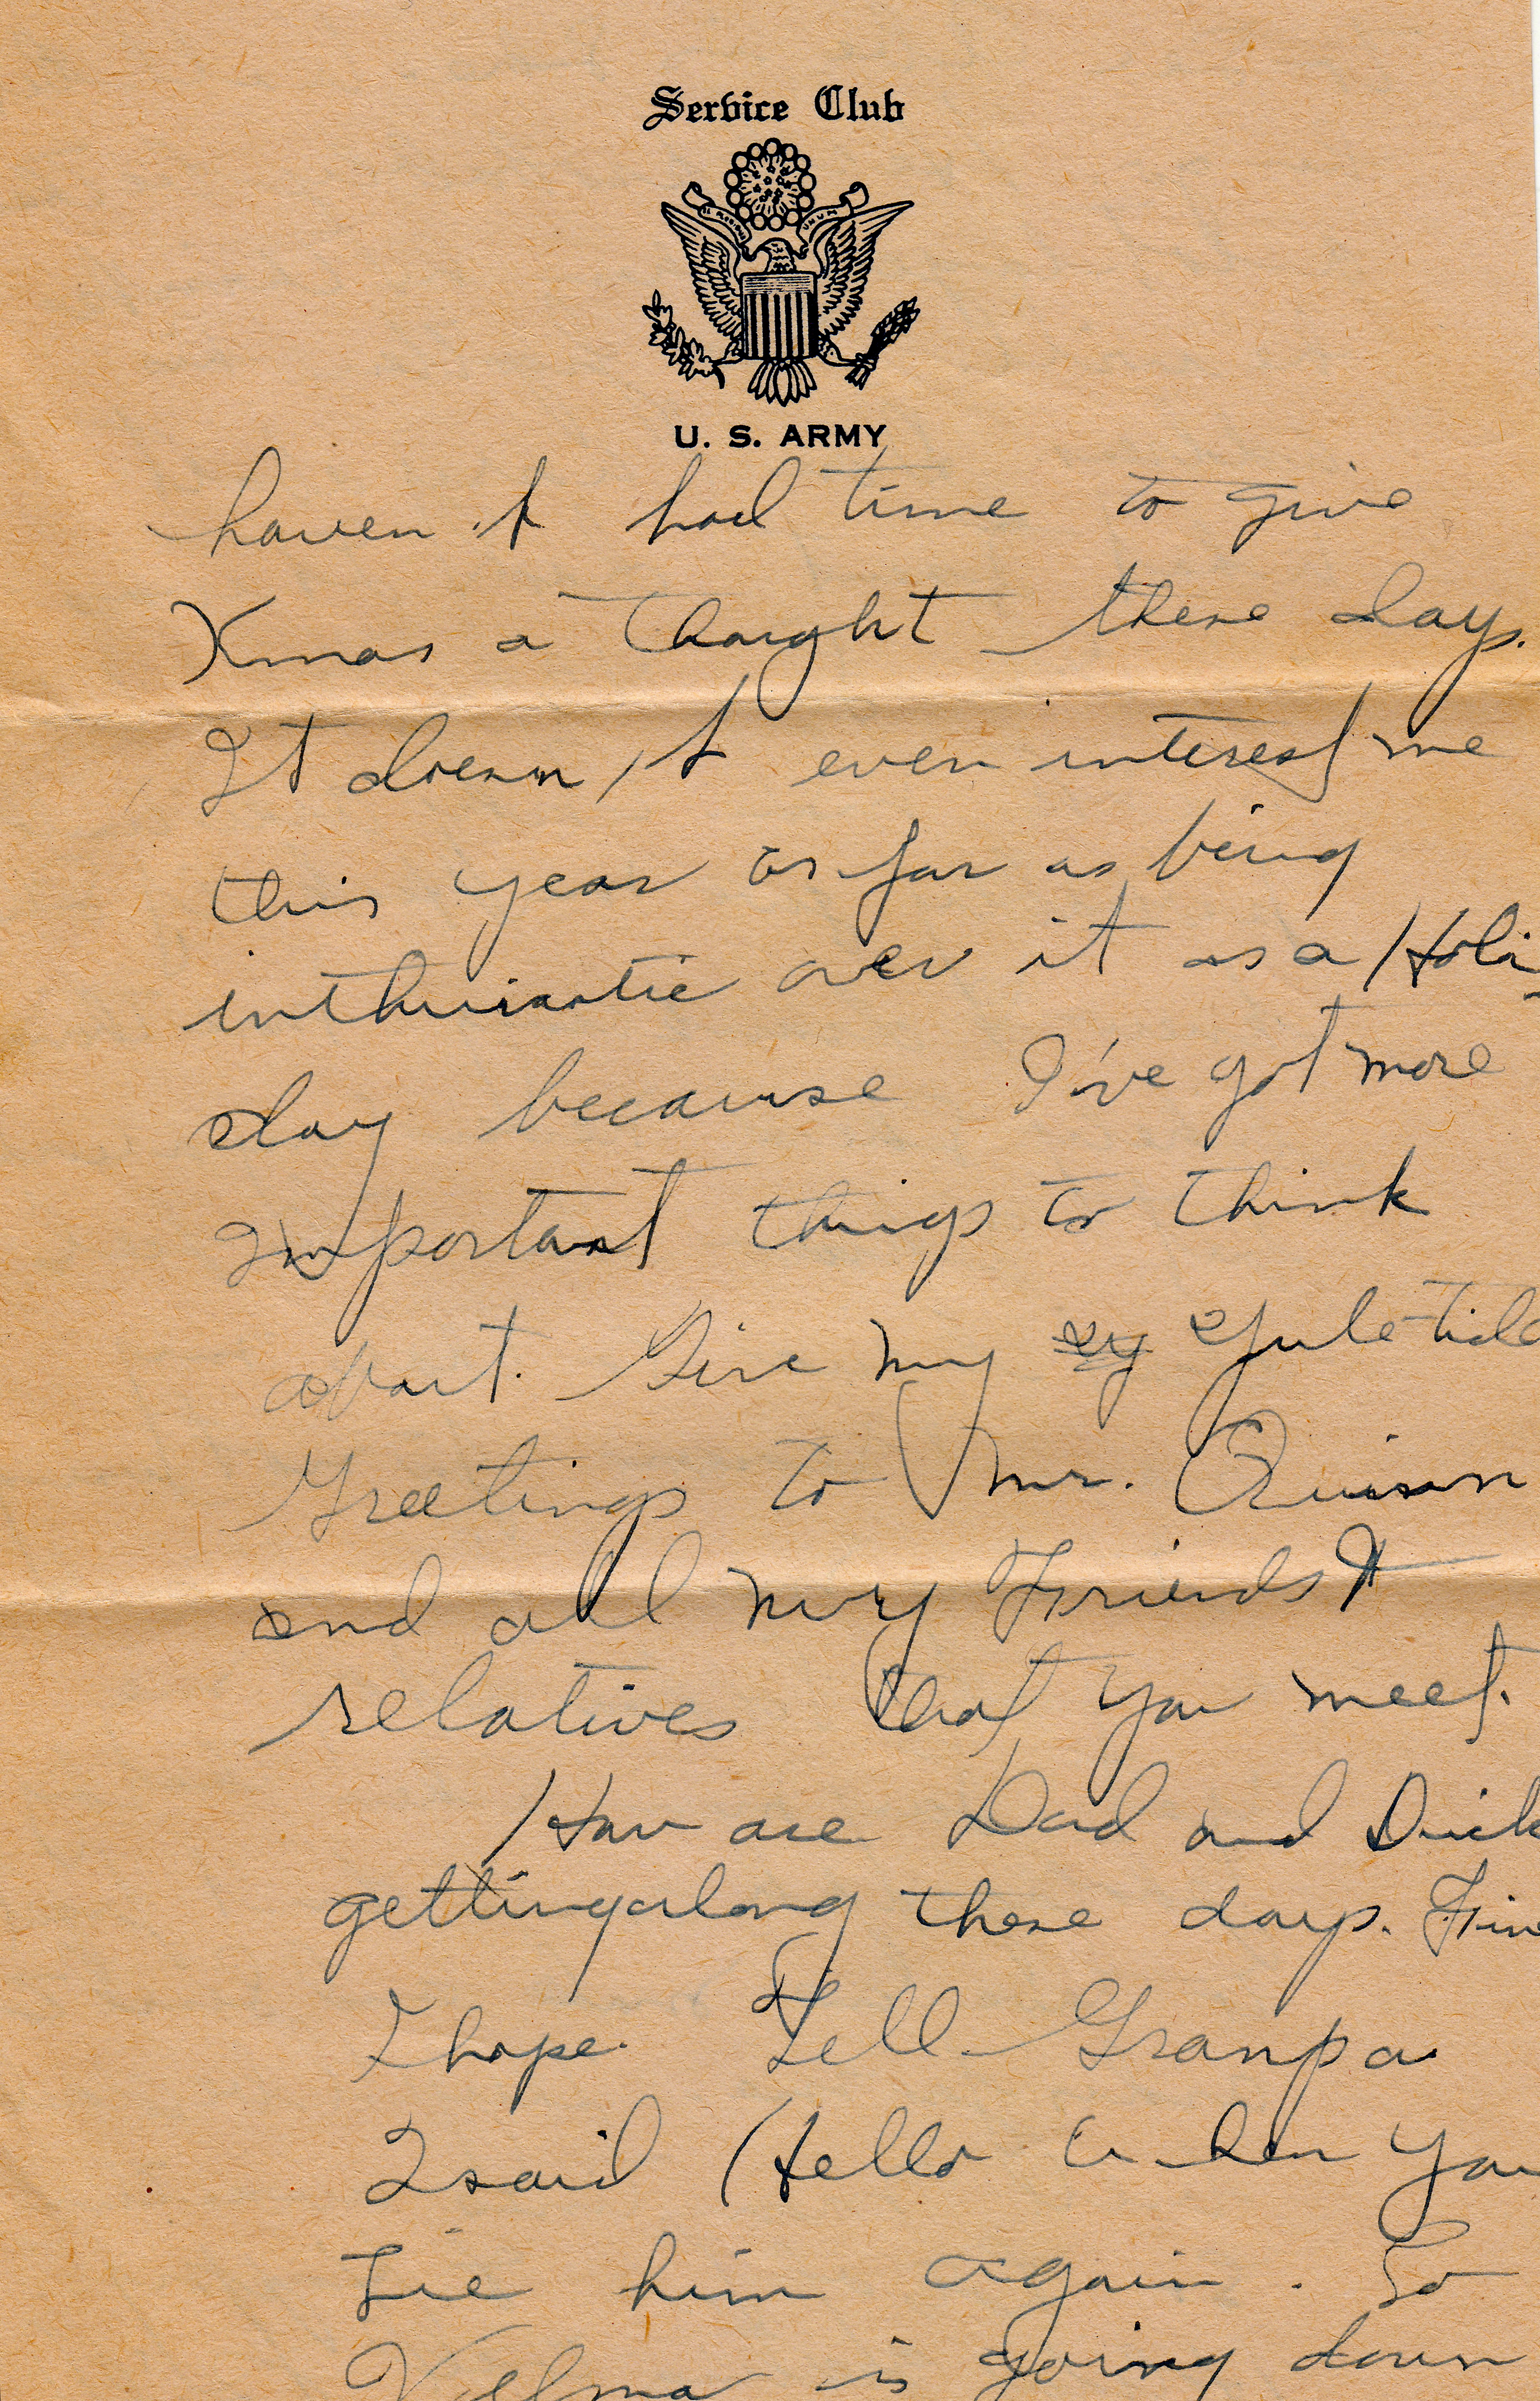 Service Club
U. S. ARMY
haven't had time to give
Xmas a thought these days.
It doesn't even interest me
this year as far as being
inthuisastic over it as a Holi-
day because I've got more
important things to think
about. Give my Yule-tide
Greetings to Mr.
and all my Friends &
relatives that you meet.
How are Dad and Dick
getting along these days. Fine
I hope. Tell Granpa
I said Hello when you
Sie him again. So
Velma is going down